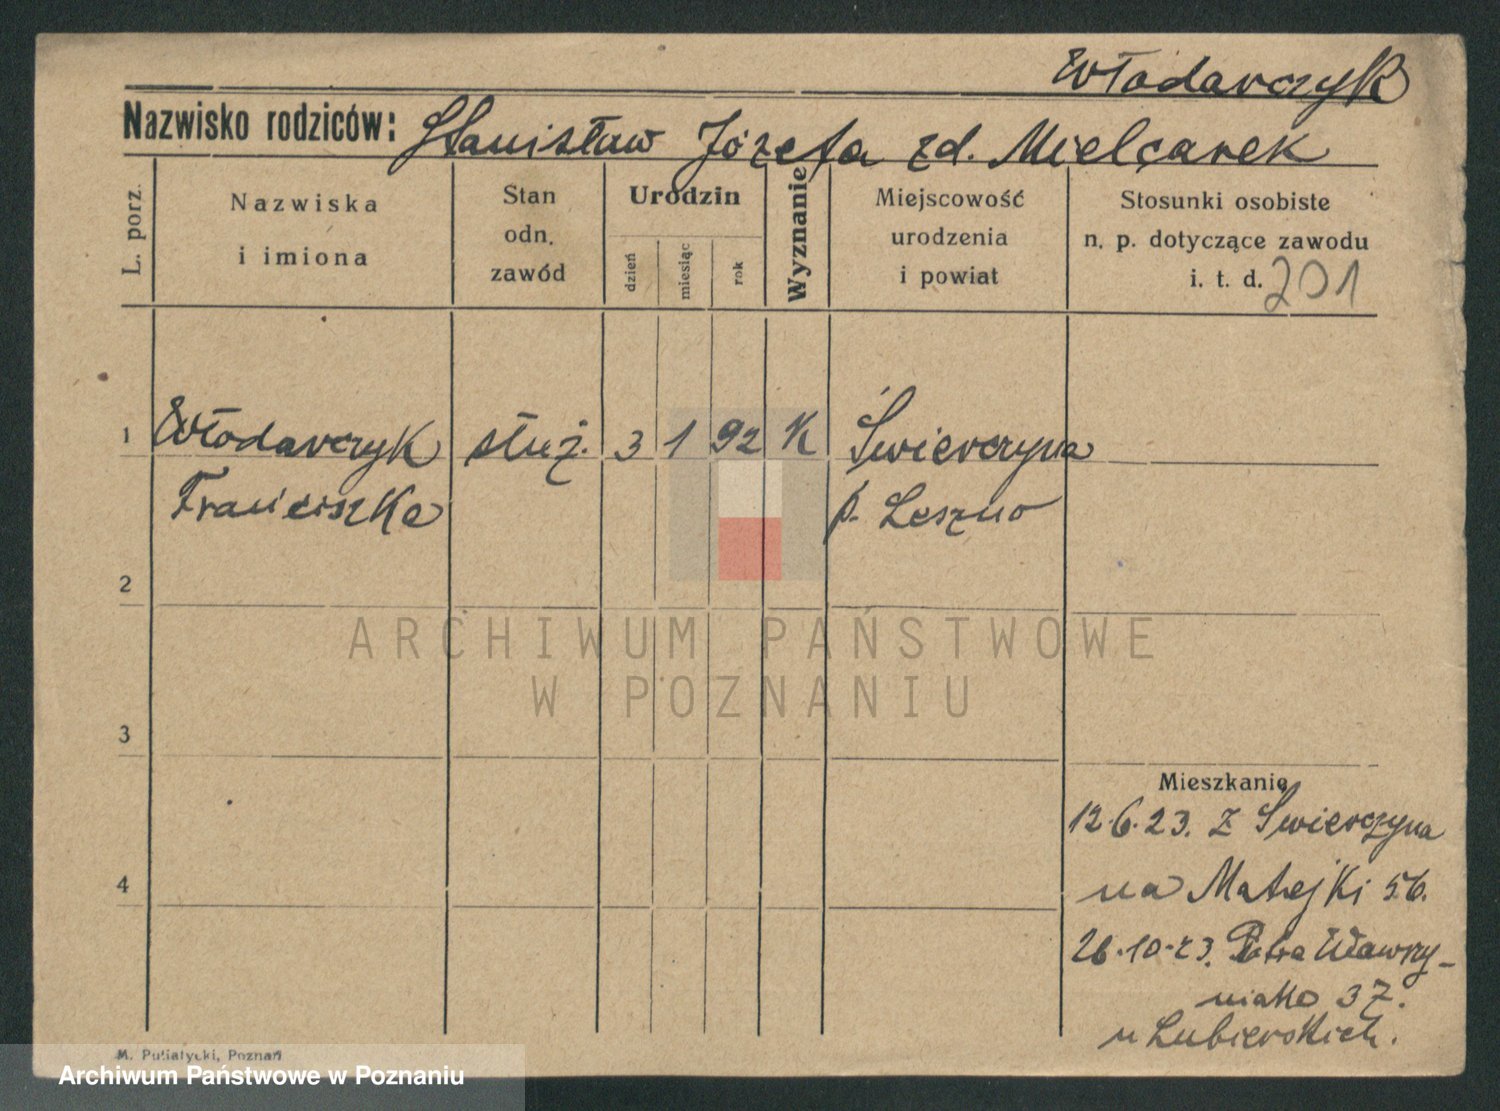 Włodarczyk
Nazwisko rodziców: Stanisław Józefa zd. Mielcarek
L. porz.
Nazwiska
i imiona
Stan
odn.
zawód
Urodzin
dzień
miesiąc
rok
Wyznanie
Miejscowość
urodzenia
i powiat
Stosunki osobiste
n. p. dotyczące zawodu
i. t. d. 201
1 Włodarczyk służ. 3 1 92 K Świerczyna
Franciszka p. Leszno
2
ARCHIWUM PAŃSTWOWE
W POZNANIU
3
Mieszkanie
12.6.23. z Świerczyna
na Matejki 56.
4
26.10.23. Piotra Wawrzy-
niaka 37.
u Lubierskich.
M. Putiatycki, Poznań
Archiwum Państwowe w Poznaniu